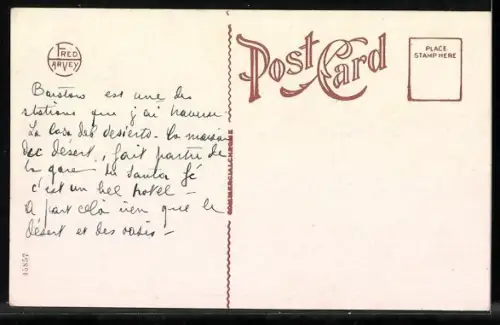 FRED HARVEY
POST CARD
PLACE
STAMP HERE
Barstow est une des
stations que j'ai traversé
La Casa del desierto - la maison
du désert, fait partie de
la gare du Santa Fé
c'est un bel hotel -
a part celà rien que le
désert et des oasis -
COMMERCIALCHROME